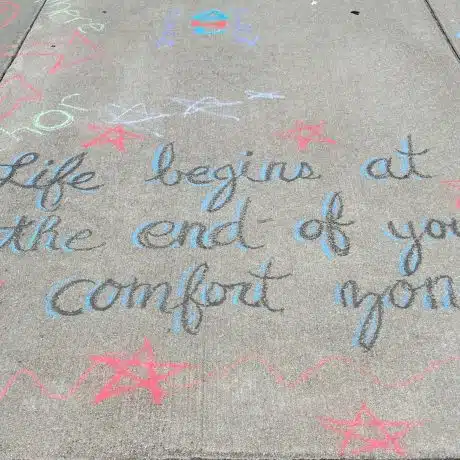 Life begins at
the end of you
comfort zon